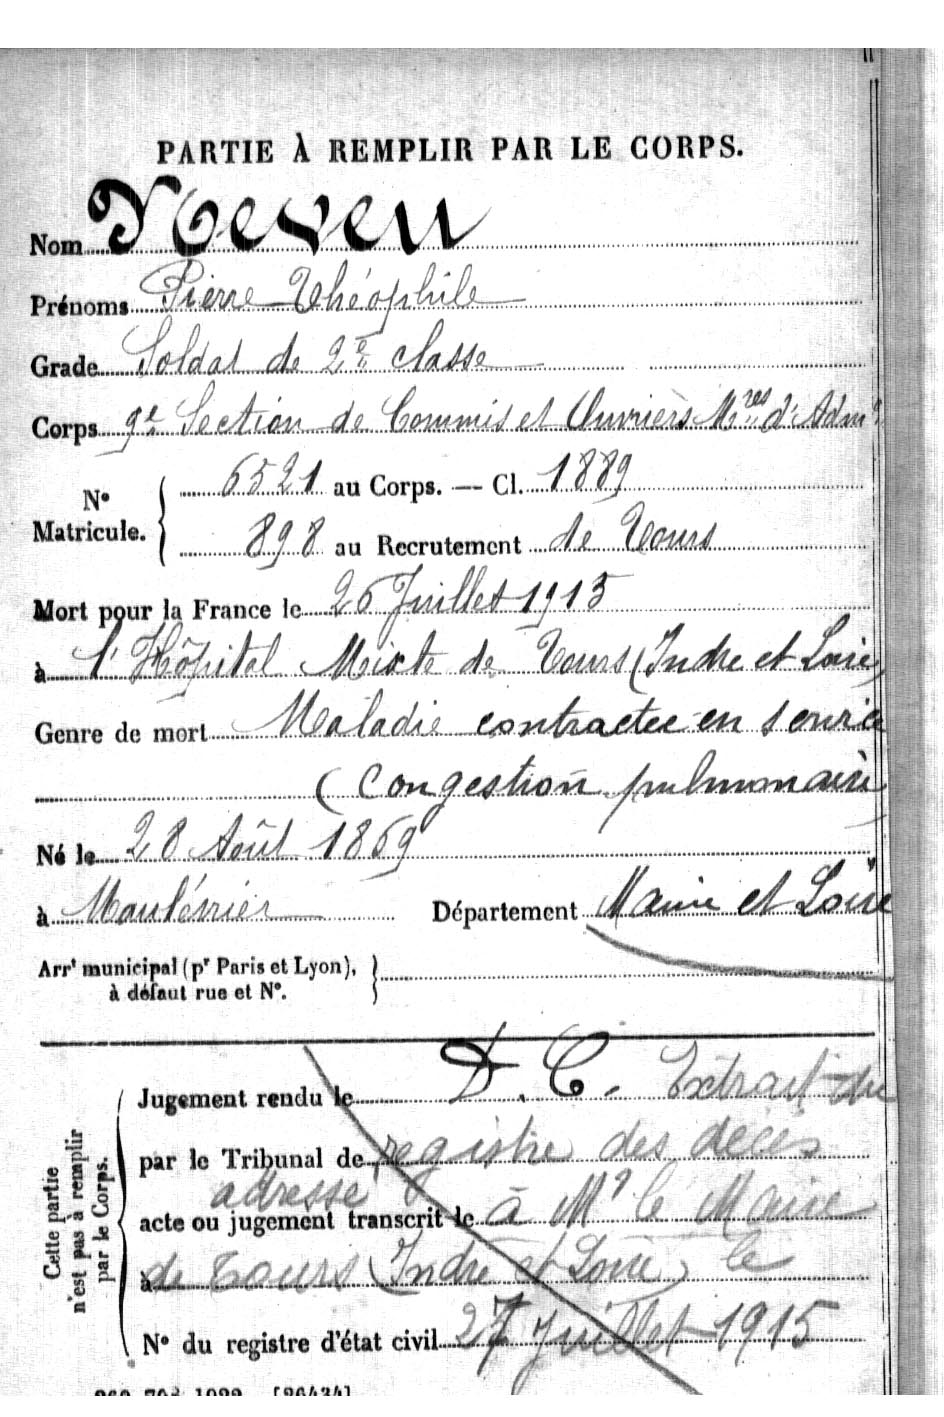 PARTIE À REMPLIR PAR LE CORPS.
Nom Neveu
Prénoms Pierre Théophile
Grade Soldat de 2e classe
Corps 9e Section de Commis et Ouvriers Mres d'Adm
N° Matricule. 6521 au Corps. — Cl. 1889
898 au Recrutement de Tours
Mort pour la France le 26 Juillet 1915
à l'Hôpital Mixte de Tours (Indre et Loire)
Genre de mort Maladie contractée en service
(Congestion pulmonaire)
Né le 28 Août 1869
à Maulévrier Département Maine et Loire
Arrt municipal (pr Paris et Lyon), à défaut rue et N°.
Cette partie n'est pas à remplir par le Corps.
Jugement rendu le D.C. Extrait du
par le Tribunal de registre des décès
adressé
acte ou jugement transcrit le à Mr le Maire
à de Tours (Indre et Loire) le
N° du registre d'état civil 27 Juillet 1915
[26434]